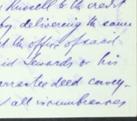 Russell to the credit
by delivering the same
at the office of said
said Edwards or his
warrantee deed convey-
all incumbrances